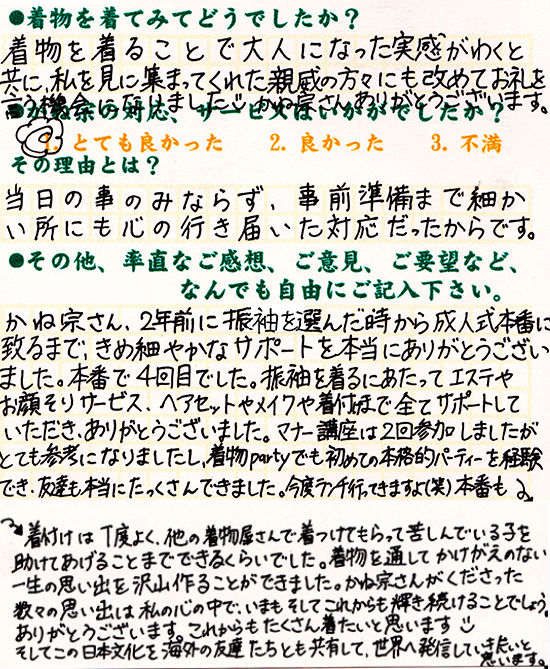 ●着物を着てみてどうでしたか？
着物を着ることで大人になった実感がわくと
共に、私を見に集まってくれた親戚の方々にも改めてお礼を
言う機会になりました☺かね宗さんありがとうございます。
●かね宗の対応、サービスはいかがでしたか？
1. とても良かった　2. 良かった　3. 不満
その理由とは？
当日の事のみならず、事前準備まで細か
い所にも心の行き届いた対応だったからです。
●その他、率直なご感想、ご意見、ご要望など、
なんでも自由にご記入下さい。
かね宗さん、2年前に振袖を選んだ時から成人式本番に
致るまで、きめ細やかなサポートを本当にありがとうござい
ました。本番で4回目でした。振袖を着るにあたってエステや
お顔そりサービス、ヘアセットやメイクや着付まで全てサポートして
いただき、ありがとうございました。マナー講座は2回参加しましたが
とても参考になりましたし、着物partyでも初めての本格的パーティーを経験
でき、友達も本当にたっくさんできました。今度ランチ行ってきますよ(笑)本番も
着付けは丁度よく、他の着物屋さんで着つけてもらって苦しんでいる子を
助けてあげることまでできるくらいでした。着物を通してかけがえのない
一生の思い出を沢山作ることができました。かね宗さんがくださった
数々の思い出は私の心の中で、いまもそしてこれからも輝き続けることでしょう。
ありがとうございます。これからもたくさん着たいと思います☺
そしてこの日本文化を海外の友達たちとも共有して、世界へ発信していきたいと
思います。